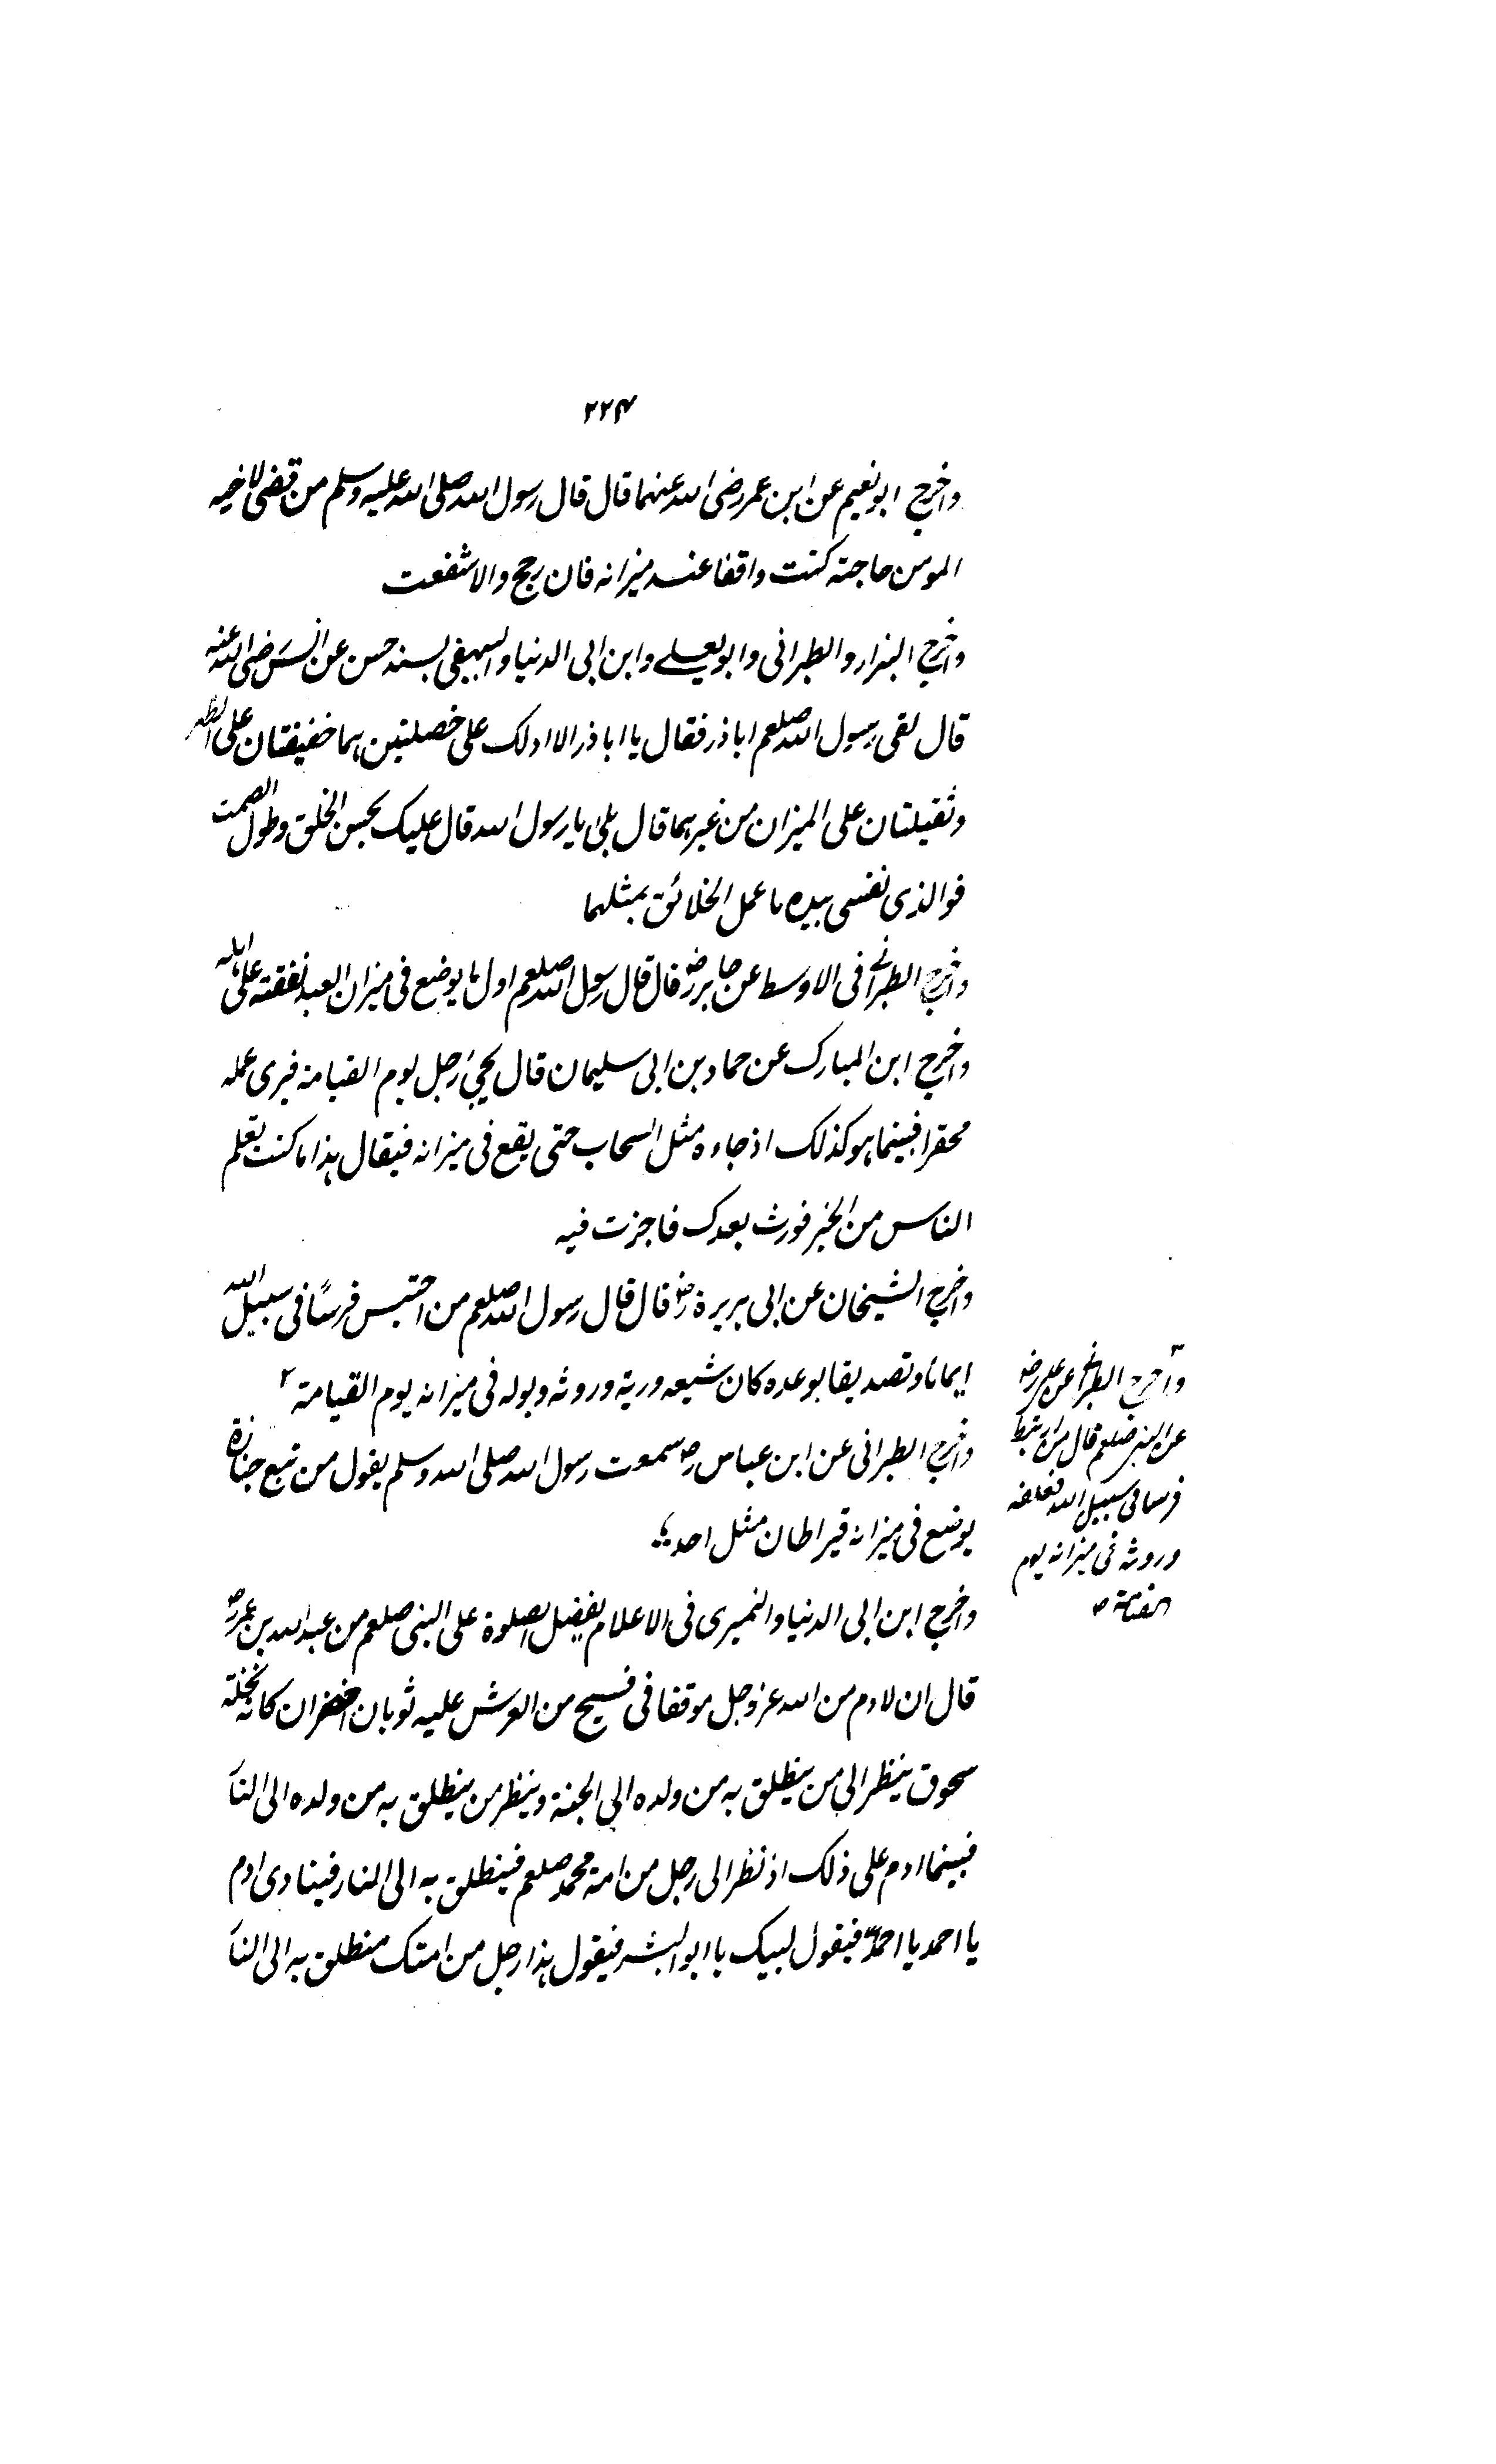 ۲۲۴
واخرج ابونعيم عن ابن عمر رضى الله عنهما قال قال رسول الله صلى الله عليه وسلم من قضى لاخيه
المومن حاجته كنت واقفا عند ميزانه فان رجح والا شفعت
واخرج البزار والطبرانى وابويعلے وابن ابى الدنيا والبيهقى بسند حسن عن انس رضى الله عنه
قال لقى رسول الله صلعم اباذر فقال يا اباذر الا ادلك على خصلتين هما خفيفتان على الظهر
وثقيلتان على الميزان من غيرهما قال بلى يا رسول الله قال عليك بحسن الخلق وطول الصمت
فوالذى نفسى بيده ما عمل الخلائق بمثلهما
واخرج الطبرانے فى الاوسط عن جابر رضـ قال قال رسول الله صلعم اول ما يوضع فى ميزان العبد نفقته على اهله
واخرج ابن المبارك عن حماد بن ابى سليمان قال يجئ رجل يوم القيامة فيرى عمله
محقرا فبينما هو كذلك اذ جاءه مثل السحاب حتى يقع فى ميزانه فيقال هذا ما كنت تعلم
الناس من الخير فورث بعدك فاجزت فيه
واخرج الشيخان عن ابى هريرة رضـ قال قال رسول الله صلعم من احتبس فرسًا فى سبيل الله
ايمانا وتصديقا بوعده كان شبعه وريه وروثه وبوله فى ميزانه يوم القيامة ۲
واخرج الطبرانى عن ابن عباس رضـ سمعت رسول الله صلى الله وسلم يقول من تبع جنازة
يوضع فى ميزانه قيراطان مثل احد
واخرج ابن ابى الدنيا والنميرى فى الاعلام بفضل الصلوة على النبى صلعم من عبدالله بن عمر رضـ
قال ان لادم من الله عزوجل موقفا فى فسيح من العرش عليه ثوبان اخضران كانه نخلة
سحوق ينظر الى من ينطلق به من ولده الى الجنة وينظر من ينطلق به من ولده الى النا
فبينما ادم على ذلك اذ نظر الى رجل من امة محمد صلعم فينطلق به الى النار فينادى ادم
يا احمد يا احمد فيقول لبيك يا ابو البشر فيقول هذا رجل من امتك منطلق به الى النا
واخرج الطبرانى عن على رضـ
عن النبى صلعم قال من ارتبط
فرسا فى سبيل الله فعلفه
وروثه فى ميزانه يوم
القيامة